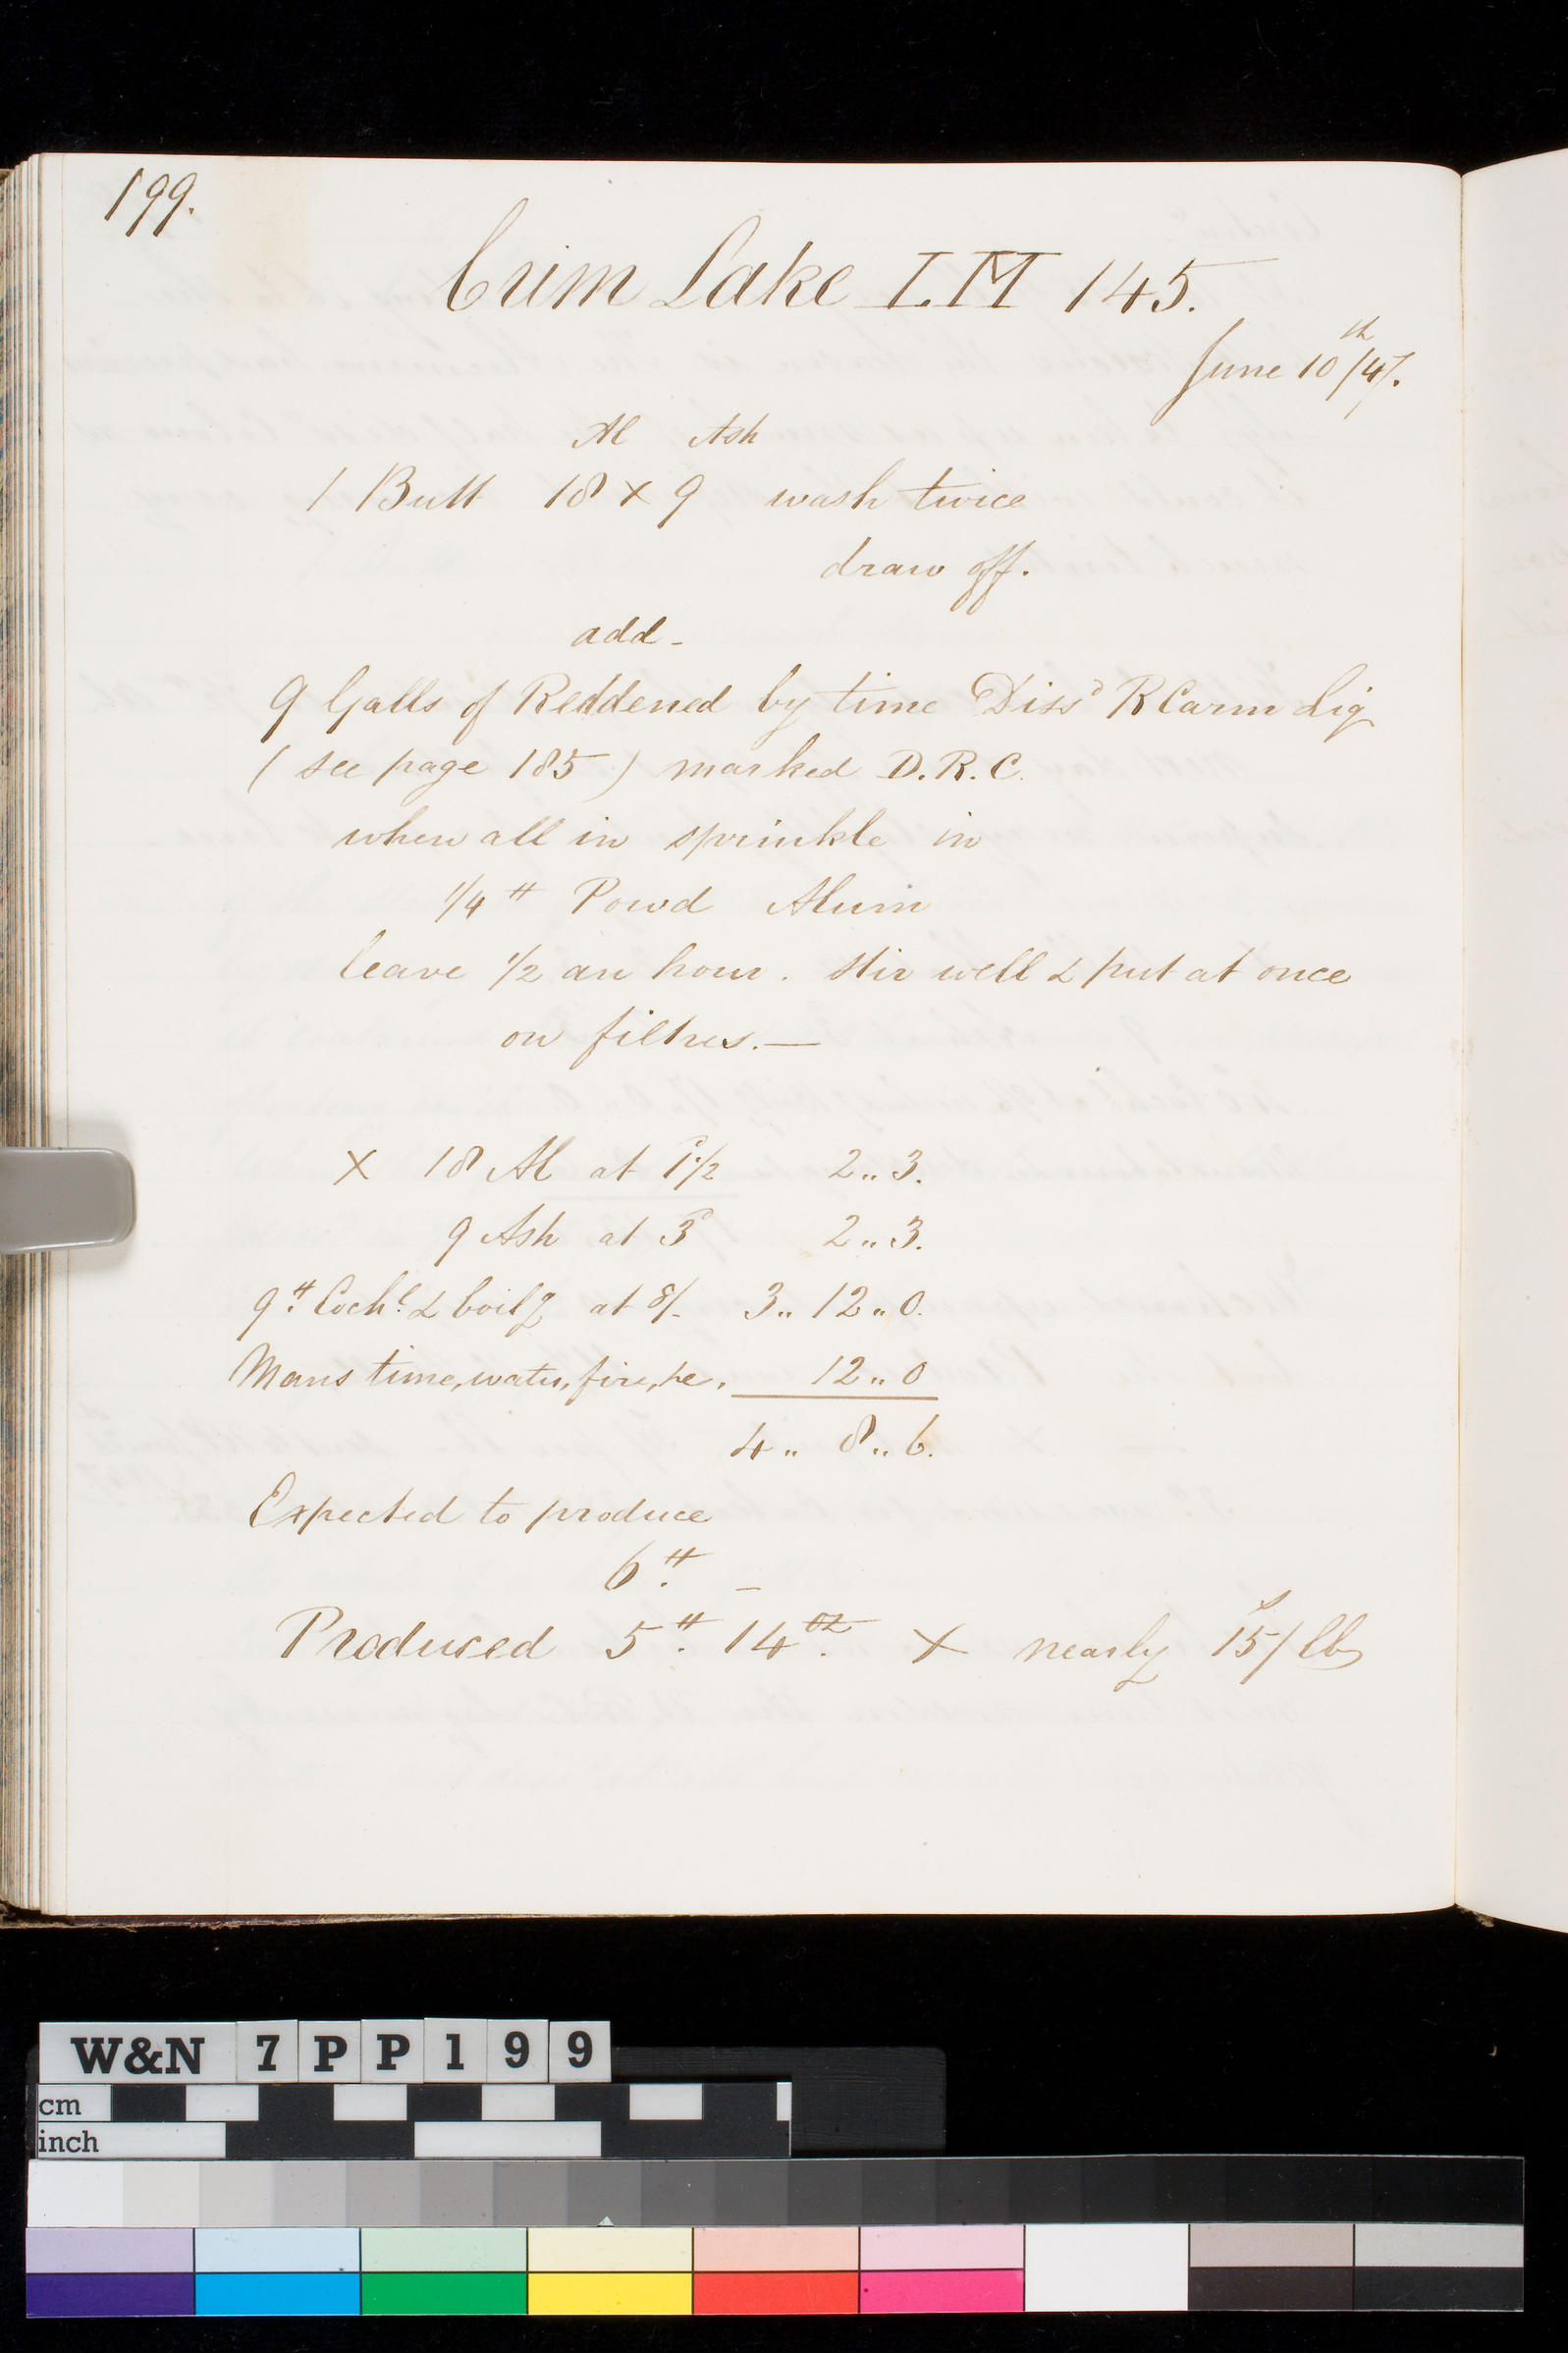 199.
Crim Lake L.M 145.
June 10th/47.
Al Ash
1 Butt 18 x 9 wash twice
draw off.
add -
9 Galls of Reddened by time Dissd R Carm Liq
( see page 185 ) marked D.R.C.
when all in sprinkle in
1/4 # Powd Alum
leave 1/2 an hour. stir well & put at once
on filtres. —
X 18 Al at 1d 1/2 2 „ 3.
9 Ash at 3d 2 „ 3.
9 # Cochl & boilg at 8/- 3 „ 12 „ 0.
Mans time, water, fire, &c. 12 „ 0
4 „ 8 „ 6.
Expected to produce
6 # -
Produced 5 # 14 oz X nearly 15s/ lb
W&N 7PP199
cm
inch